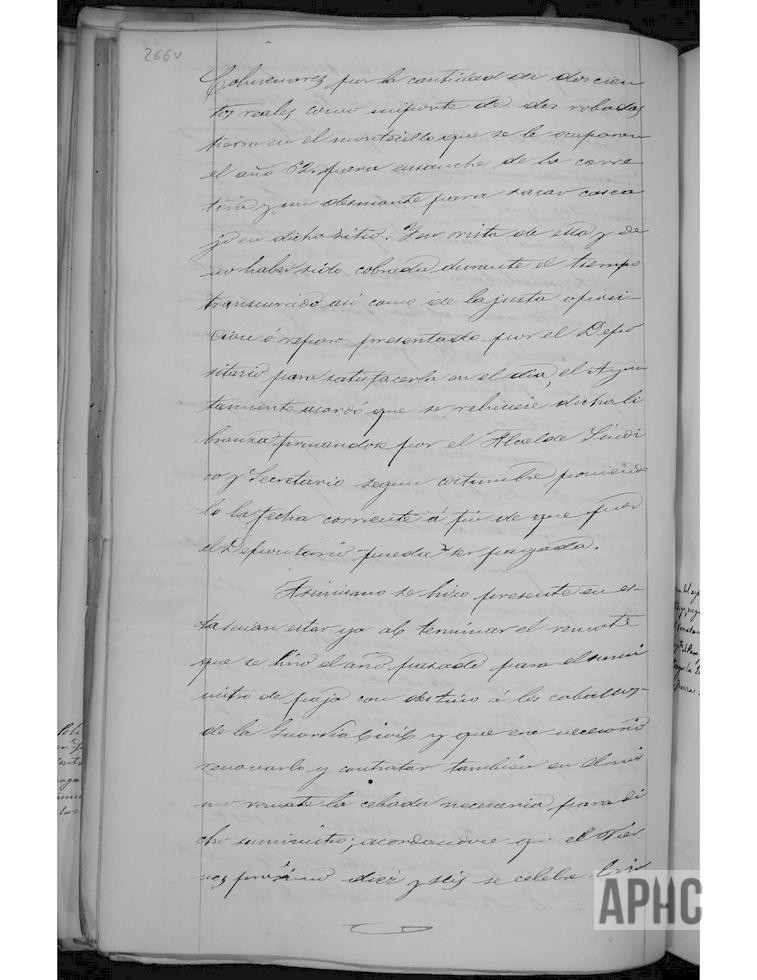 266v
Colmenares por la cantidad de doscien
tos reales como importe de dos robadas
tierra en el montecillo que se le ocuparon
el año 62 para ensanche de la carre
tera y un desmonte para sacar casca
jo en dicho sitio. Y en vista de esta y de
no haber sido cobrada durante el tiempo
transcurrido así como de la justa oposi-
cion ó reparo presentado por el Depo
sitario para satisfacerla en el dia, el Ayun
tamiento acordó que se rehiciese dicha li
branza firmandose por el Alcalde Sindi
co y Secretario segun costumbre poniendo
le la fecha corriente á fin de que por
el Depositario pueda ser pagada.
Asimismo se hizo presente en es-
ta sesion estar ya al terminar el remate
que se hizo el año pasado para el sumi
nistro de paja con destino á los caballos
de la Guardia Civil y que era necesario
renovarlo y contratar tambien en el mis
mo remate la cebada necesaria para di
cho suministro; acordandose que el Vier
nes proximo diez y seis se celebre
APHC